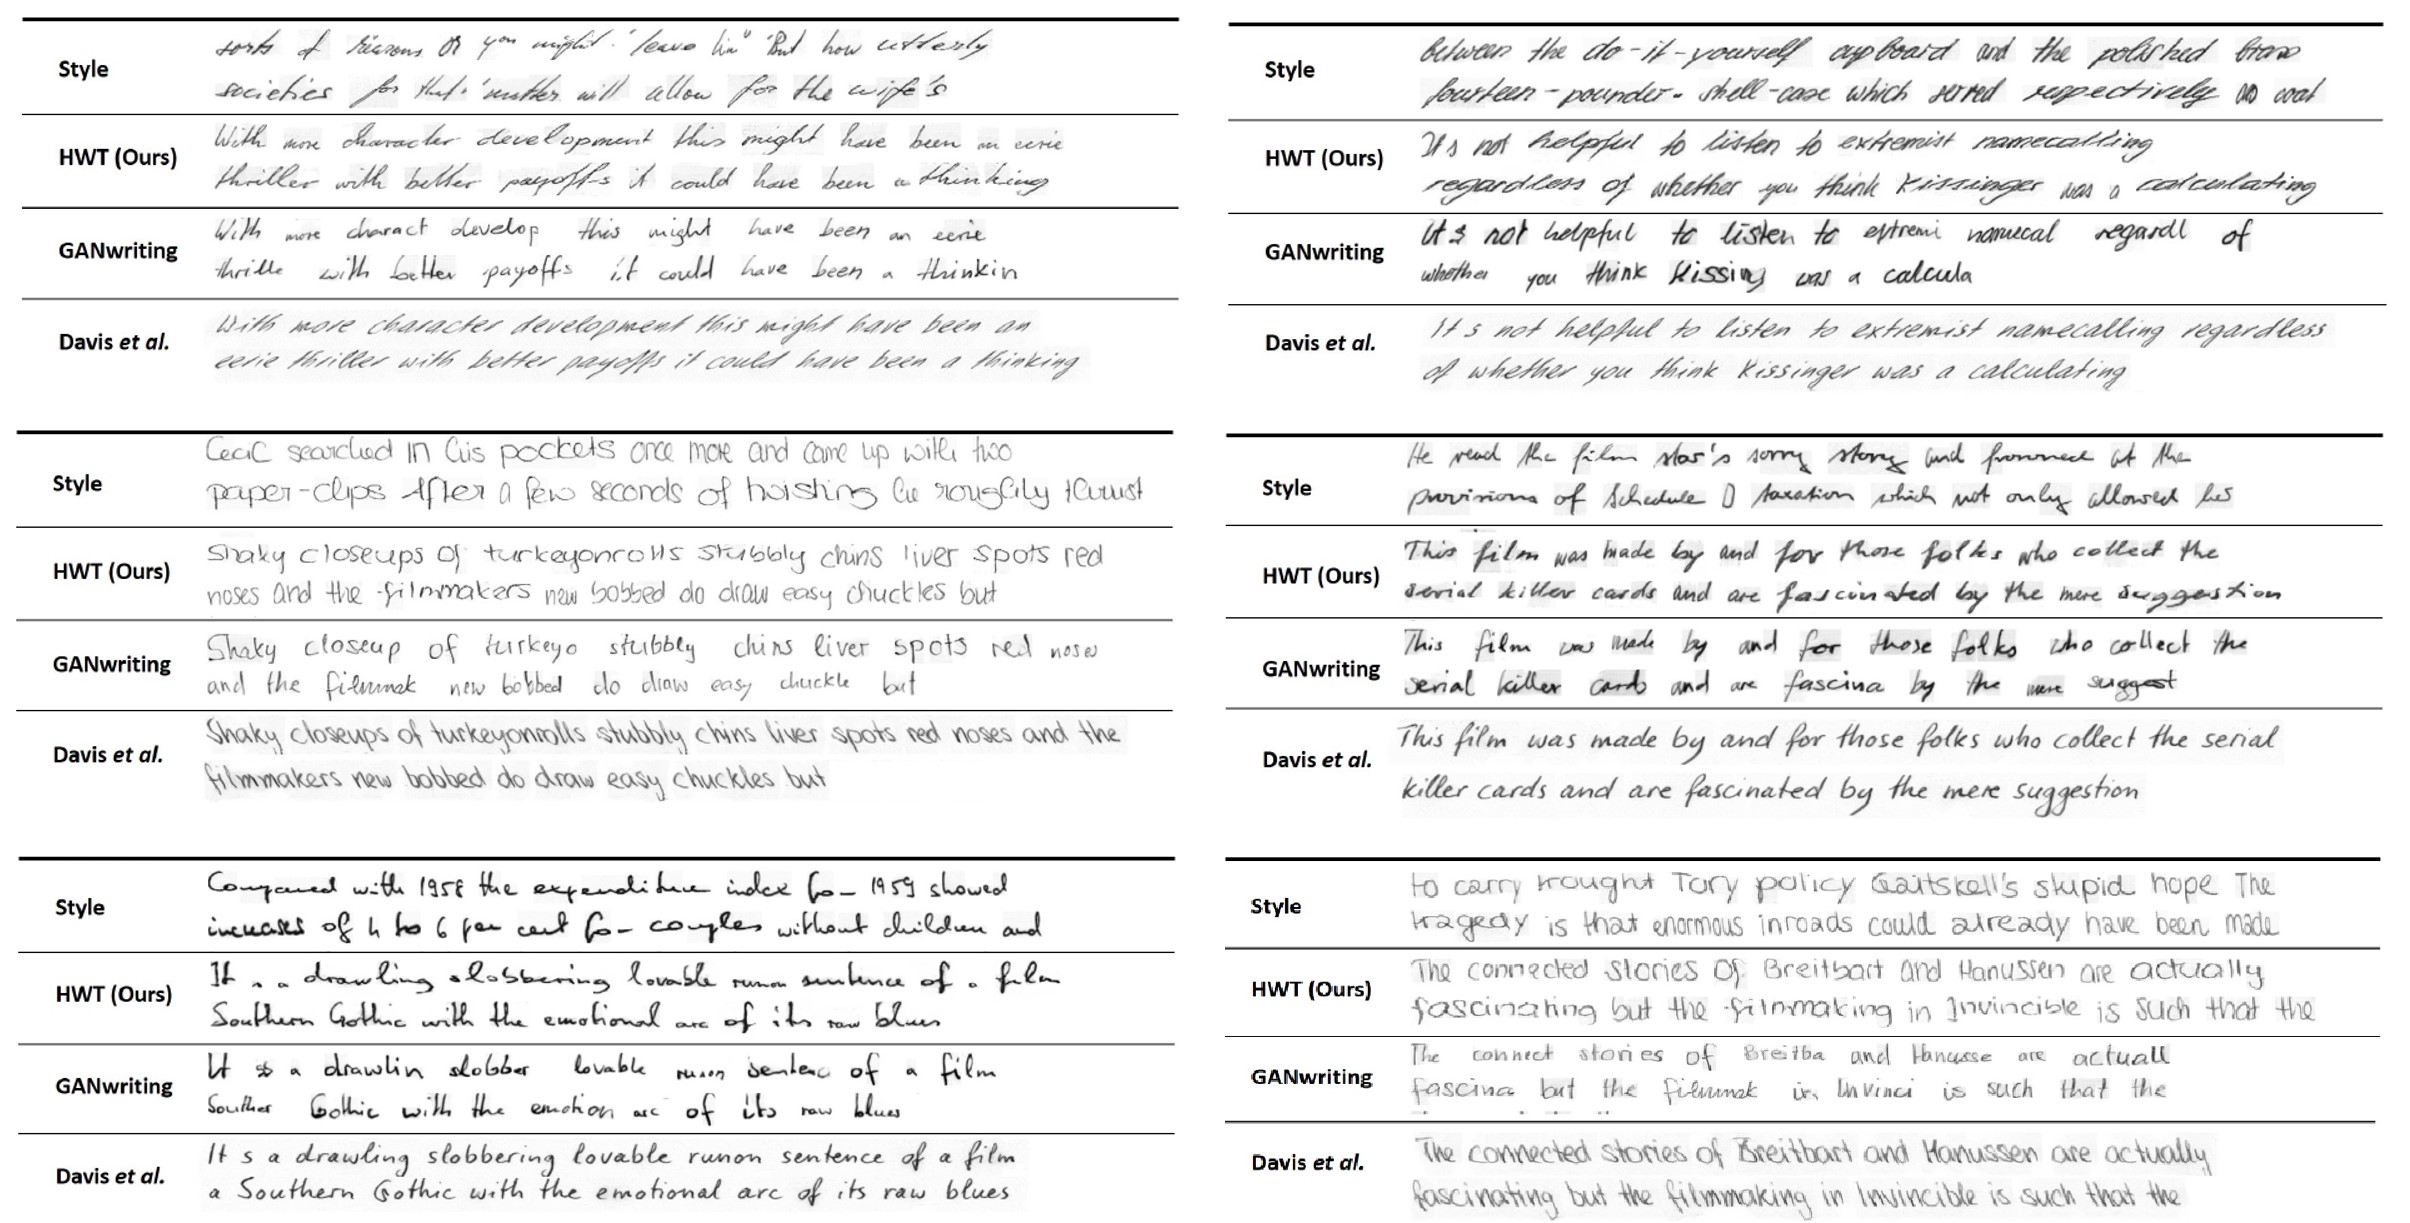 Style
sorts of reasons or you might. 'leave him' 'But how utterly
societies for that 'matter will allow for the wife's
HWT (Ours)
With more character development this might have been an eerie
thriller with better payoffs it could have been a thinking
GANwriting
With more charact develop this might have been an eerie
thrille with better payoffs it could have been a thinkin
Davis et al.
With more character development this might have been an
eerie thriller with better payoffs it could have been a thinking
Style
Between the do-it-yourself cupboard and the polished brass
fourteen-pounder-shell-case which served respectively as coat
HWT (Ours)
It s not helpful to listen to extremist namecalling
regardless of whether you think Kissinger was a calculating
GANwriting
It s not helpful to listen to extremi namecal regardl of
whether you think Kissing was a calcula
Davis et al.
It s not helpful to listen to extremist namecalling regardless
of whether you think Kissinger was a calculating
Style
Cecil searched in his pockets once more and came up with two
paper-clips After a few seconds of hoisting he roughly thrust
HWT (Ours)
Shaky closeups of turkeyonrolls stubbly chins liver spots red
noses and the filmmakers new bobbed do draw easy chuckles but
GANwriting
Shaky closeup of turkeyo stubbly chins liver spots red noses
and the filmmak new bobbed do draw easy chuckle but
Davis et al.
Shaky closeups of turkeyonrolls stubbly chins liver spots red noses and the
filmmakers new bobbed do draw easy chuckles but
Style
He read the film star's sorry story and frowned at the
provisions of Schedule D taxation which not only allowed his
HWT (Ours)
This film was made by and for those folks who collect the
serial killer cards and are fascinated by the mere suggestion
GANwriting
This film was made by and for those folks who collect the
serial killer cards and are fascina by the mere suggest
Davis et al.
This film was made by and for those folks who collect the serial
killer cards and are fascinated by the mere suggestion
Style
Compared with 1958 the expenditure index for 1959 showed
increases of 4 to 6 per cent for couples without children and
HWT (Ours)
It s a drawling slobbering lovable runon sentence of a film
Southern Gothic with the emotional arc of its raw blues
GANwriting
It s a drawlin slobber lovable runon sentenc of a film
Souther Gothic with the emotion arc of its raw blues
Davis et al.
It s a drawling slobbering lovable runon sentence of a film
a Southern Gothic with the emotional arc of its raw blues
Style
to carry trought Tory policy Gaitskell's stupid hope The
tragedy is that enormous inroads could already have been made
HWT (Ours)
The connected stories Of Breitbart and Hanussen are actually
fascinating but the filmmaking in Invincible is such that the
GANwriting
The connect stories of Breitba and Hanusse are actuall
fascina but the filmmak in Invinci is such that the
Davis et al.
The connected stories of Breitbart and Hanussen are actually
fascinating but the filmmaking in Invincible is such that the